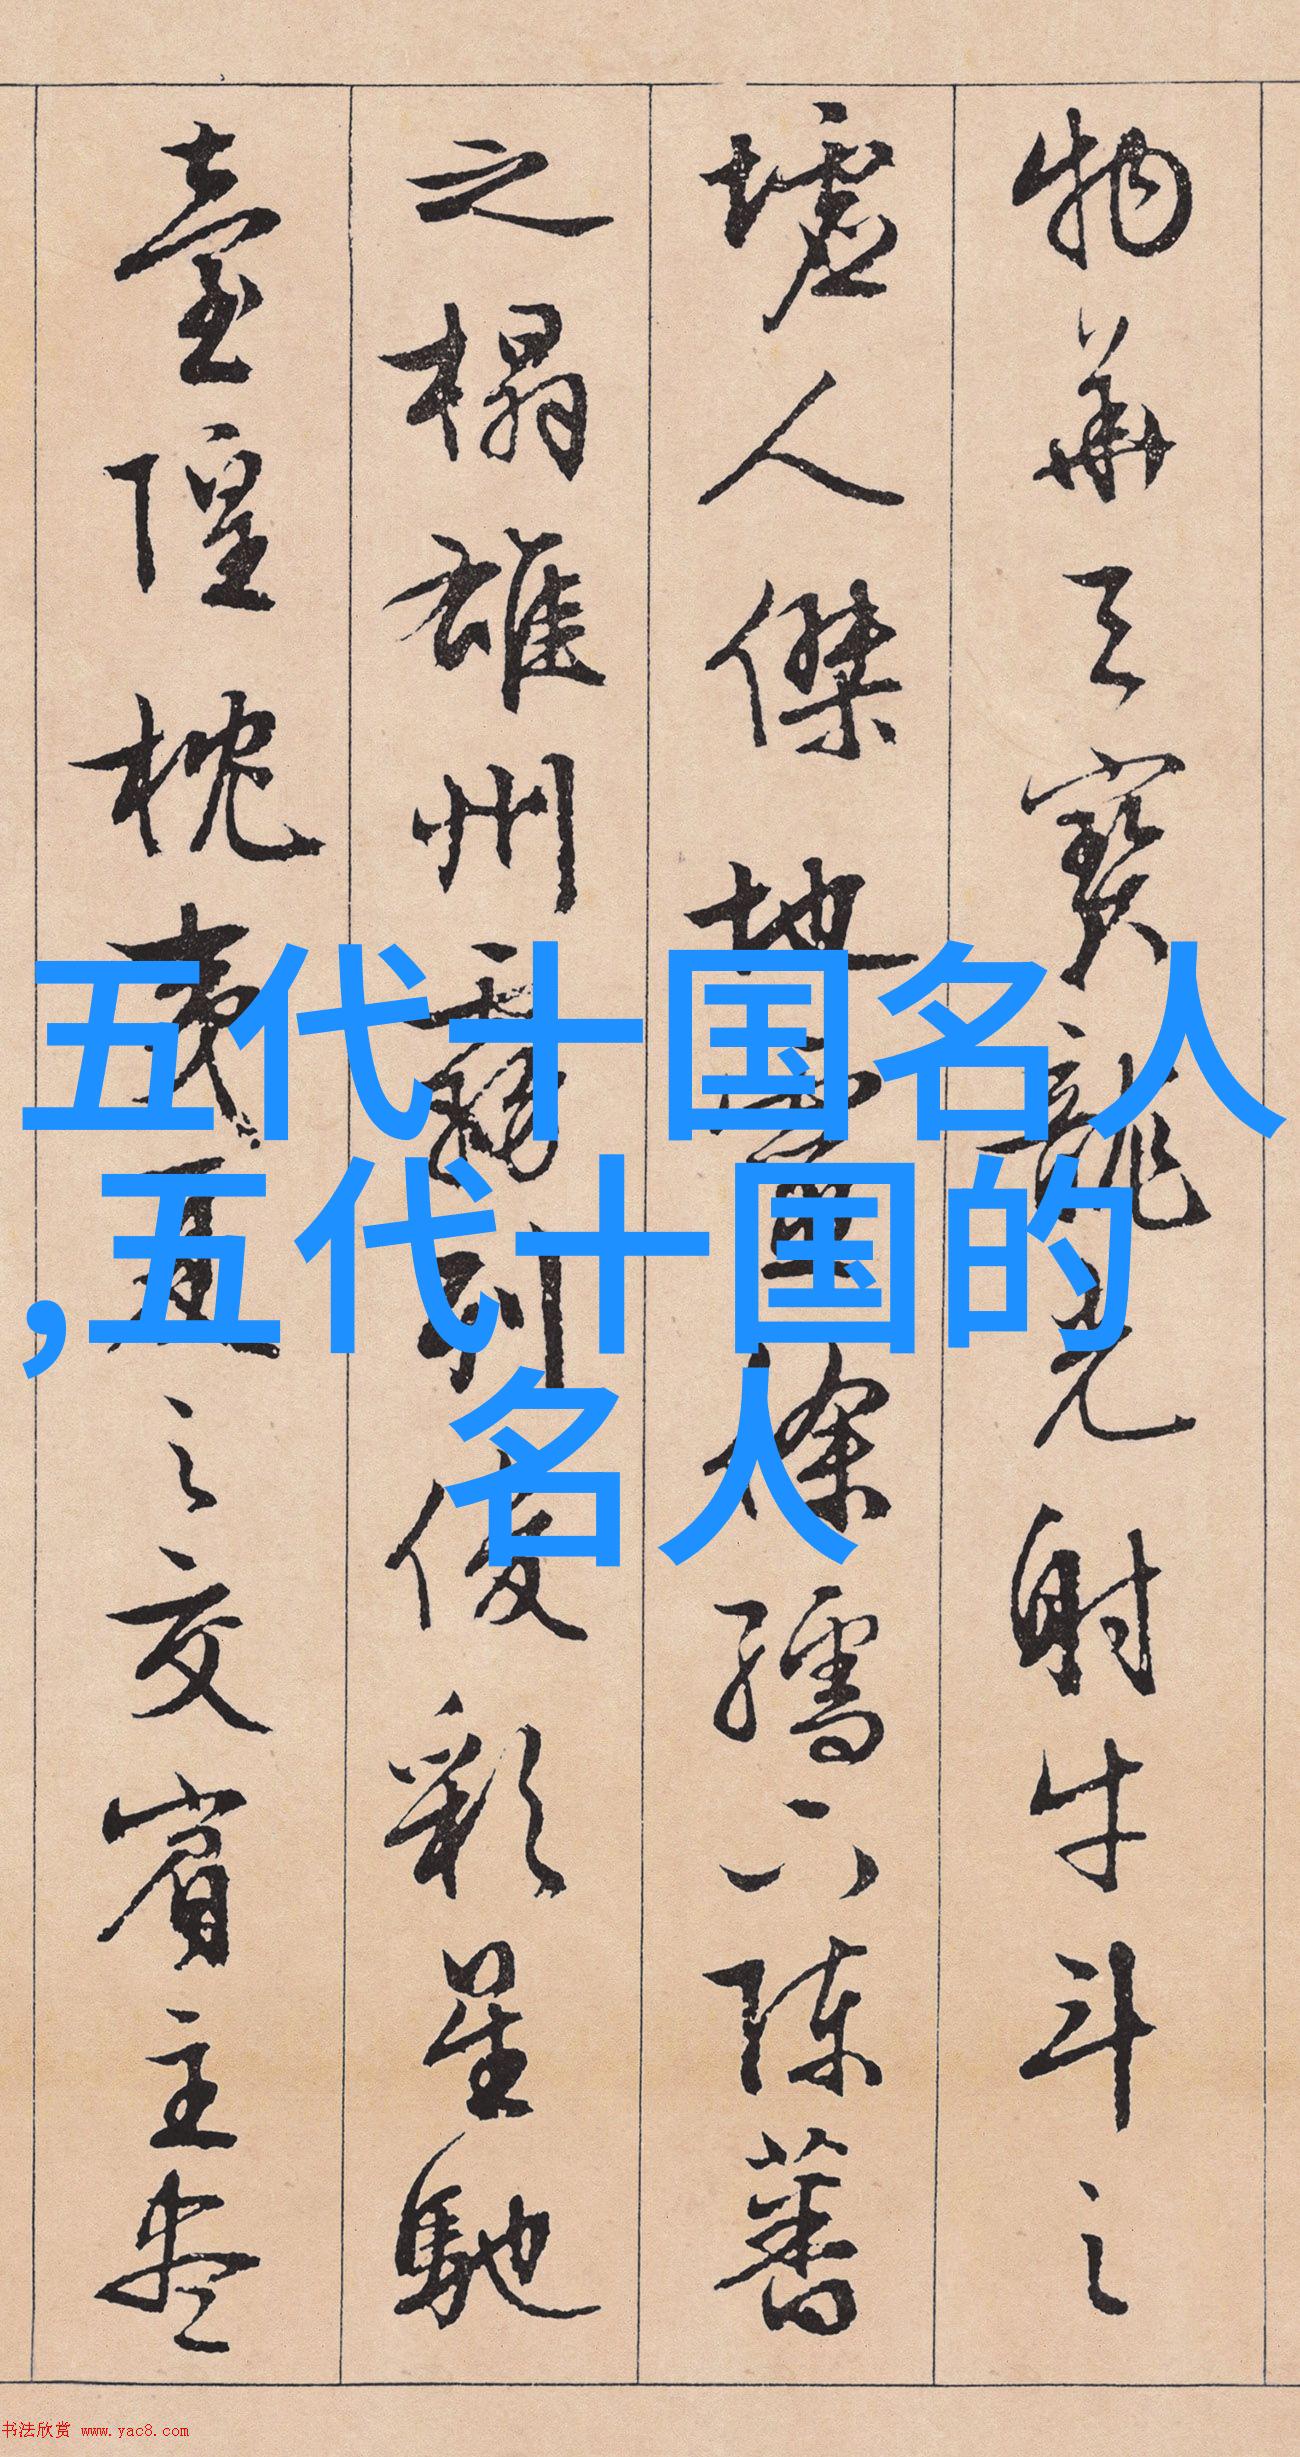 物華天寶龍光射牛斗之
墟人傑地靈徐孺下陳蕃
之榻雄州霧列俊彩星馳
臺隍枕夷夏之交賓主盡
五代十国名人
,五代十国的
名人
书法欣赏 www.yac8.com